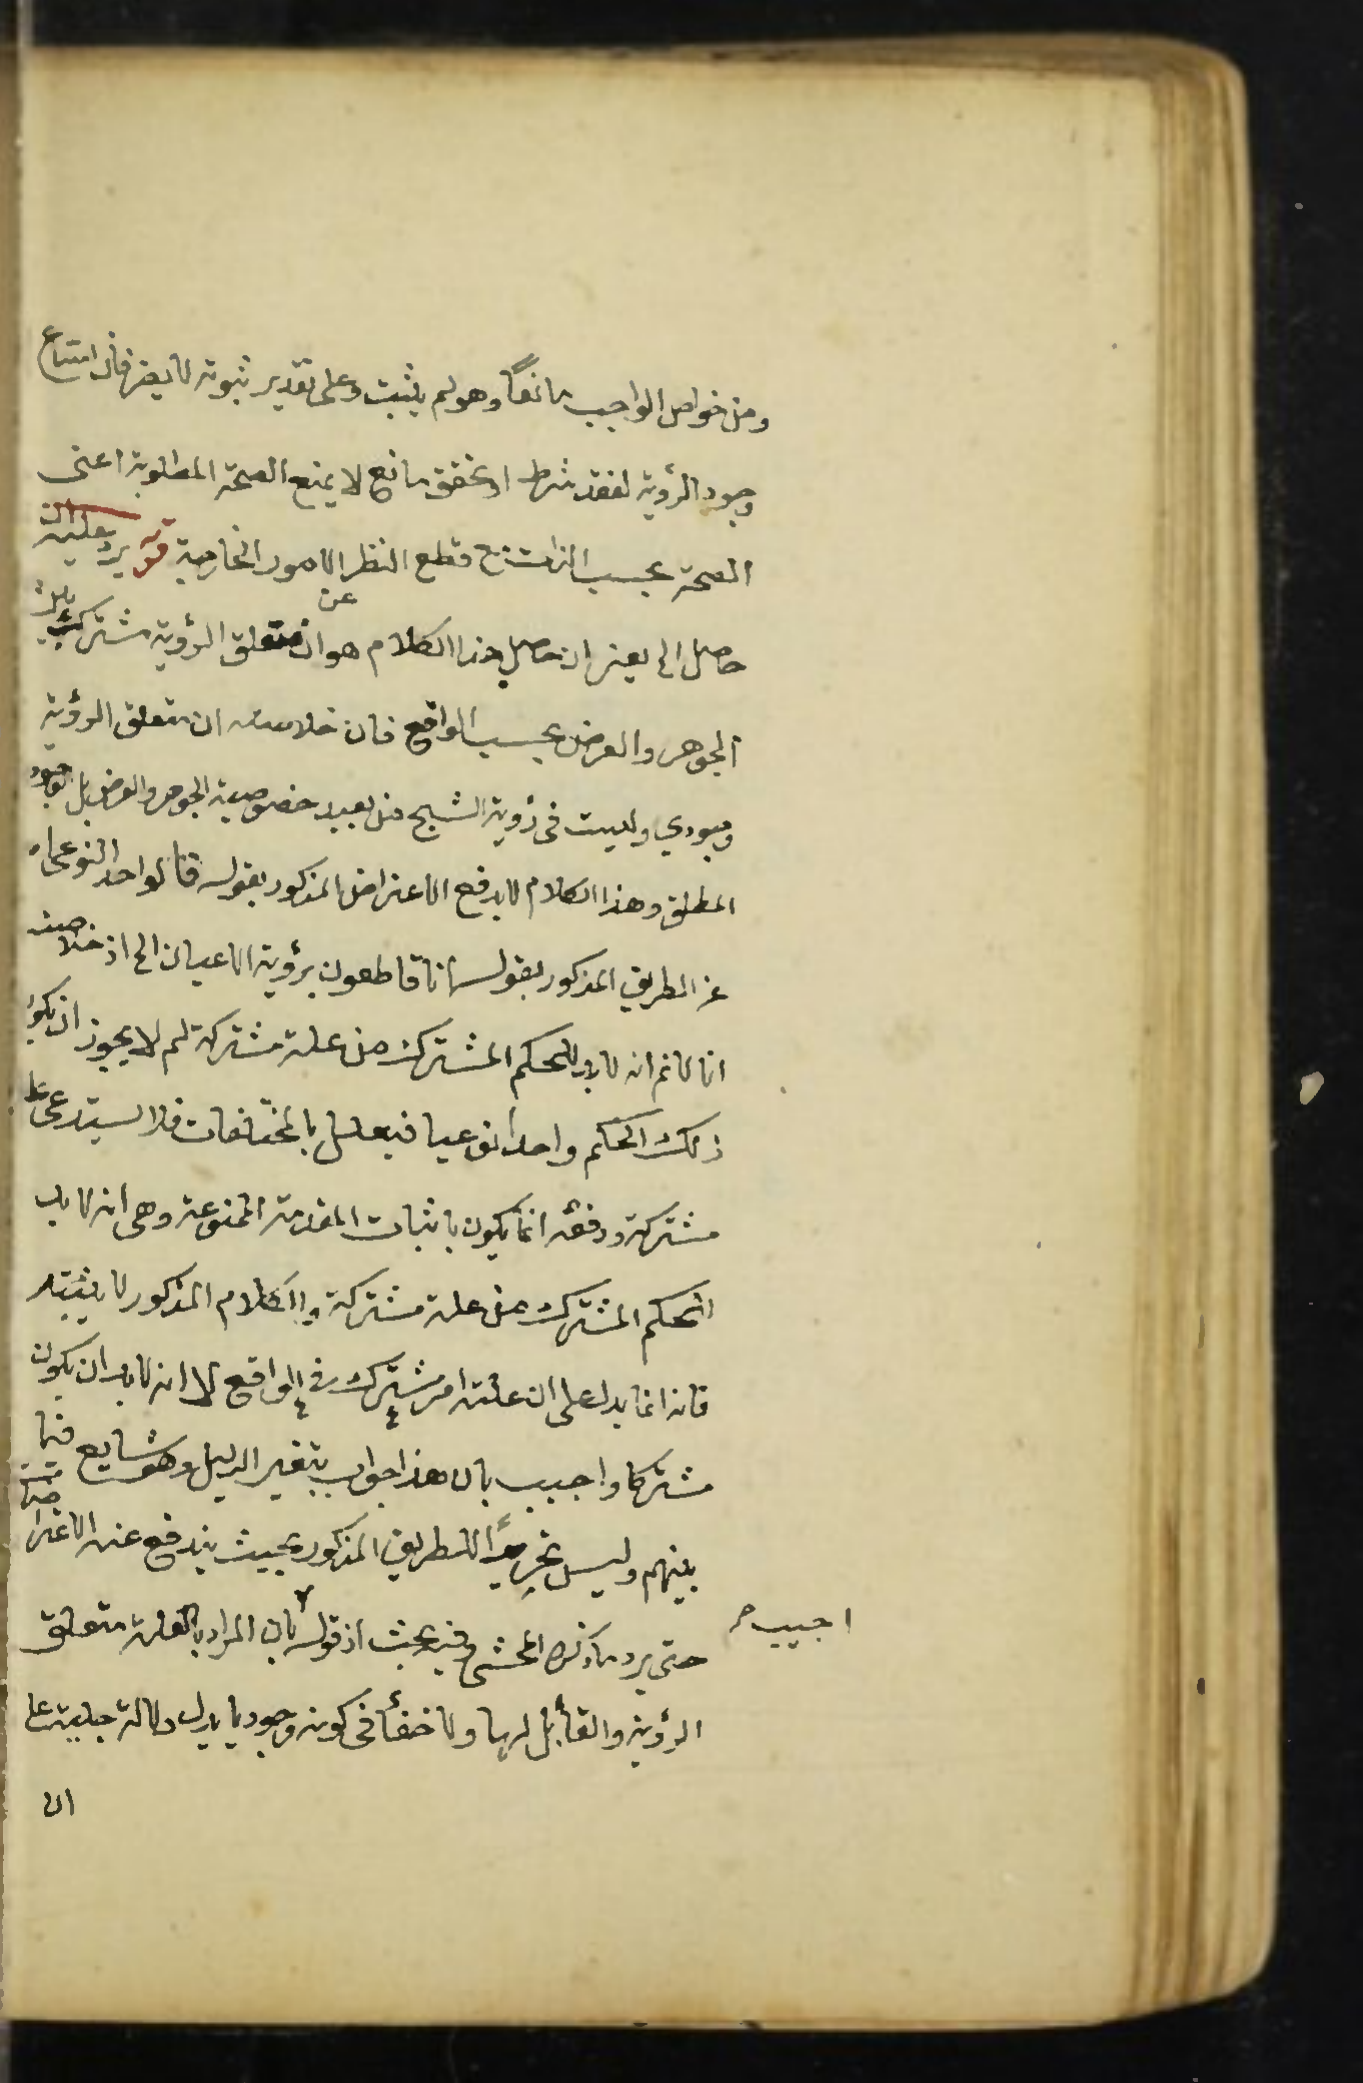 ومن خواص الواجب مانعًا وهو لم يثبت وعلى تقدير ثبوته لا يضر فان امتناع
وجود الرؤية لفقد شرط او تحقق مانع لا يمنع الصحة المطلوبة اعنى
الصحة بحسب الذات مع قطع النظر عن الامور الخارجية قوله يرد عليه ان
حاصل الى يعنى ان حاصل هذا الكلام هو ان متعلق الرؤية مشترك بين
الجوهر والعرض بحسب الواقع فان خلاصته ان متعلق الرؤية
وجودي وليست فى رؤية الشبح من بعيد خصوصية الجوهر والعرض بل الوجود
المطلق وهذا الكلام لا يدفع الاعتراض المذكور بقوله فالواحد النوعى اه
عن الطريق المذكور بقوله انا قاطعون برؤية الاعيان الى اذ خلاصته
انا لا نم انه لا بد للحكم المشترك من علة مشتركة لم لا يجوز ان يكون
ذلك الحكم واحدا نوعيا فيعلل بالمختلفات فلا يستدعى علة
مشتركة ودفعه انما يكون باثبات المقدمة الممنوعة وهى انه لا بد
للحكم المشترك من علة مشتركة والكلام المذكور لا يثبته
فانه انما يدل على ان علته امر مشترك فى الواقع لا انه لا بد ان يكون
مشتركا واجيب بان هذا جواب بتغير الدليل وهو شايع فيما
بينهم وليس تحريرًا للطريق المذكور بحيث يندفع عنه الاعتراض
حتى يرد ما ذكره المحشى وفيه بحث اذ قوله اجيب بان المراد بالعلة متعلق
الرؤية والقابل لها ولا خفأ فى كونه وجوديا يدل دلالة جلية على
ان